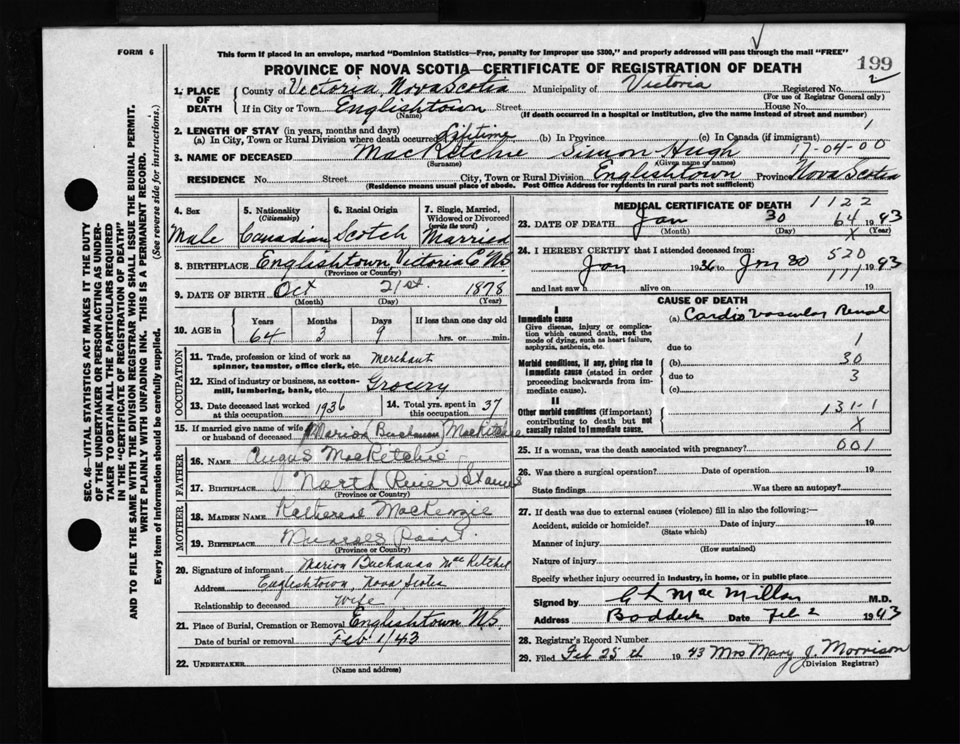 FORM 6
This form if placed in an envelope, marked "Dominion Statistics—Free, penalty for improper use $300," and properly addressed will pass through the mail "FREE"
199
2
PROVINCE OF NOVA SCOTIA—CERTIFICATE OF REGISTRATION OF DEATH
SEC. 46—VITAL STATISTICS ACT MAKES IT THE DUTY
OF THE UNDERTAKER OR PERSON ACTING AS UNDER-
TAKER TO OBTAIN ALL THE PARTICULARS REQUIRED
IN THE "CERTIFICATE OF REGISTRATION OF DEATH"
AND TO FILE THE SAME WITH THE DIVISION REGISTRAR WHO SHALL ISSUE THE BURIAL PERMIT.
WRITE PLAINLY WITH UNFADING INK. THIS IS A PERMANENT RECORD.
Every item of Information should be carefully supplied. (See reverse side for instructions.)
1. PLACE OF DEATH
County of Victoria, Nova Scotia Municipality of Victoria Registered No.
(For use of Registrar General only)
If in City or Town Englishtown Street House No.
(Name) (If death occurred in a hospital or institution, give the name instead of street and number)
2. LENGTH OF STAY (in years, months and days)
(a) In City, Town or Rural Division where death occurred Lifetime (b) In Province (c) In Canada (if immigrant) 1
3. NAME OF DECEASED MacRitchie Simon Hugh 17-04-00
(Surname) (Given name or names)
RESIDENCE No. Street City, Town or Rural Division Englishtown Province Nova Scotia
(Residence means usual place of abode. Post Office Address for residents in rural parts not sufficient)
4. Sex Male
5. Nationality (Citizenship) Canadian
6. Racial Origin Scotch
7. Single, Married, Widowed or Divorced (write the word) Married
8. BIRTHPLACE Englishtown, Victoria Co N.S.
(Province or Country)
9. DATE OF BIRTH Oct 21st 1878
(Month) (Day) (Year)
10. AGE in Years Months Days If less than one day old
64 3 9 hrs. or min.
OCCUPATION
11. Trade, profession or kind of work as spinner, teamster, office clerk, etc. Merchant
12. Kind of industry or business, as cotton-mill, lumbering, bank, etc. Grocery
13. Date deceased last worked at this occupation 1936
14. Total yrs. spent in this occupation 37
15. If married give name of wife or husband of deceased Marion Buchanan MacRitchie
FATHER
16. NAME Angus MacRitchie
17. BIRTHPLACE North River St Anns
(Province or Country)
MOTHER
18. MAIDEN NAME MacKenzie
19. BIRTHPLACE
(Province or Country)
20. Signature of informant Marion Buchanan MacRitchie
Address Englishtown, Nova Scotia
Relationship to deceased Wife
21. Place of Burial, Cremation or Removal Englishtown N.S.
Date of burial or removal Feb 1/43
22. UNDERTAKER
(Name and address)
MEDICAL CERTIFICATE OF DEATH 1122
23. DATE OF DEATH Jan 30 64 1943
(Month) (Day) X (Year)
24. I HEREBY CERTIFY that I attended deceased from: 520
Jan 1936 to Jan 30 1943
111
and last saw h alive on 19
CAUSE OF DEATH
I
Immediate cause
Give disease, injury or complication which caused death, not the mode of dying, such as heart failure, asphyxia, asthenia, etc.
(a) Cardio Vascular Renal
due to 1
Morbid conditions, if any, giving rise to immediate cause (stated in order proceeding backwards from immediate cause).
(b) 30
due to 3
(c)
II
Other morbid conditions (if important) contributing to death but not causally related to immediate cause.
131-1
X
25. If a woman, was the death associated with pregnancy? 001
26. Was there a surgical operation? Date of operation 19
State findings Was there an autopsy?
27. If death was due to external causes (violence) fill in also the following:—
Accident, suicide or homicide? Date of injury 19
(State which)
Manner of injury
(How sustained)
Nature of injury
Specify whether injury occurred in industry, in home, or in public place
Signed by C L MacMillan M.D.
Address Baddeck Date Feb 2 1943
28. Registrar's Record Number
29. Filed Feb 25th 1943 Mrs Mary J. Morrison
(Division Registrar)